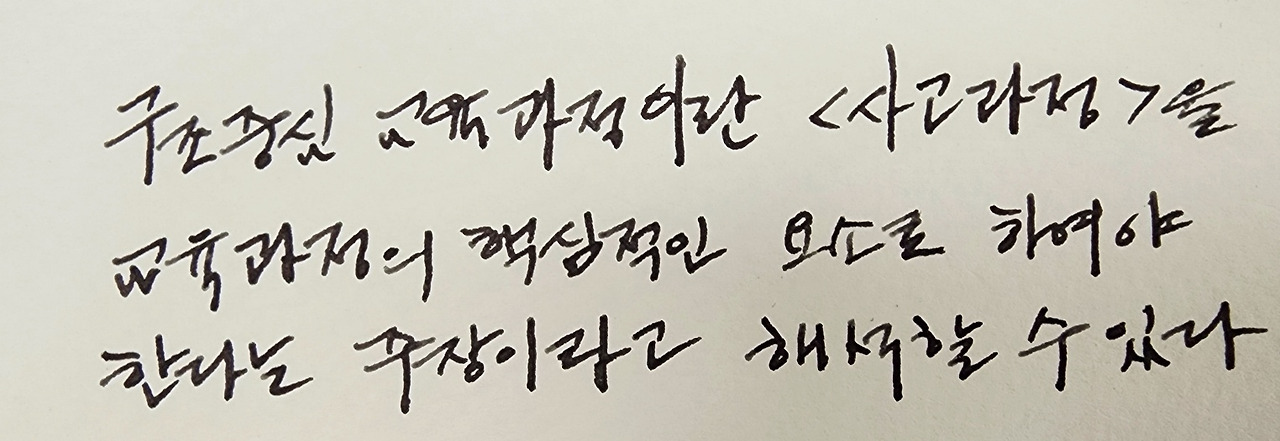 구조중심 교육과정이란 <사고과정>을
교육과정의 핵심적인 요소로 하여야
한다는 주장이라고 해석할 수 있다